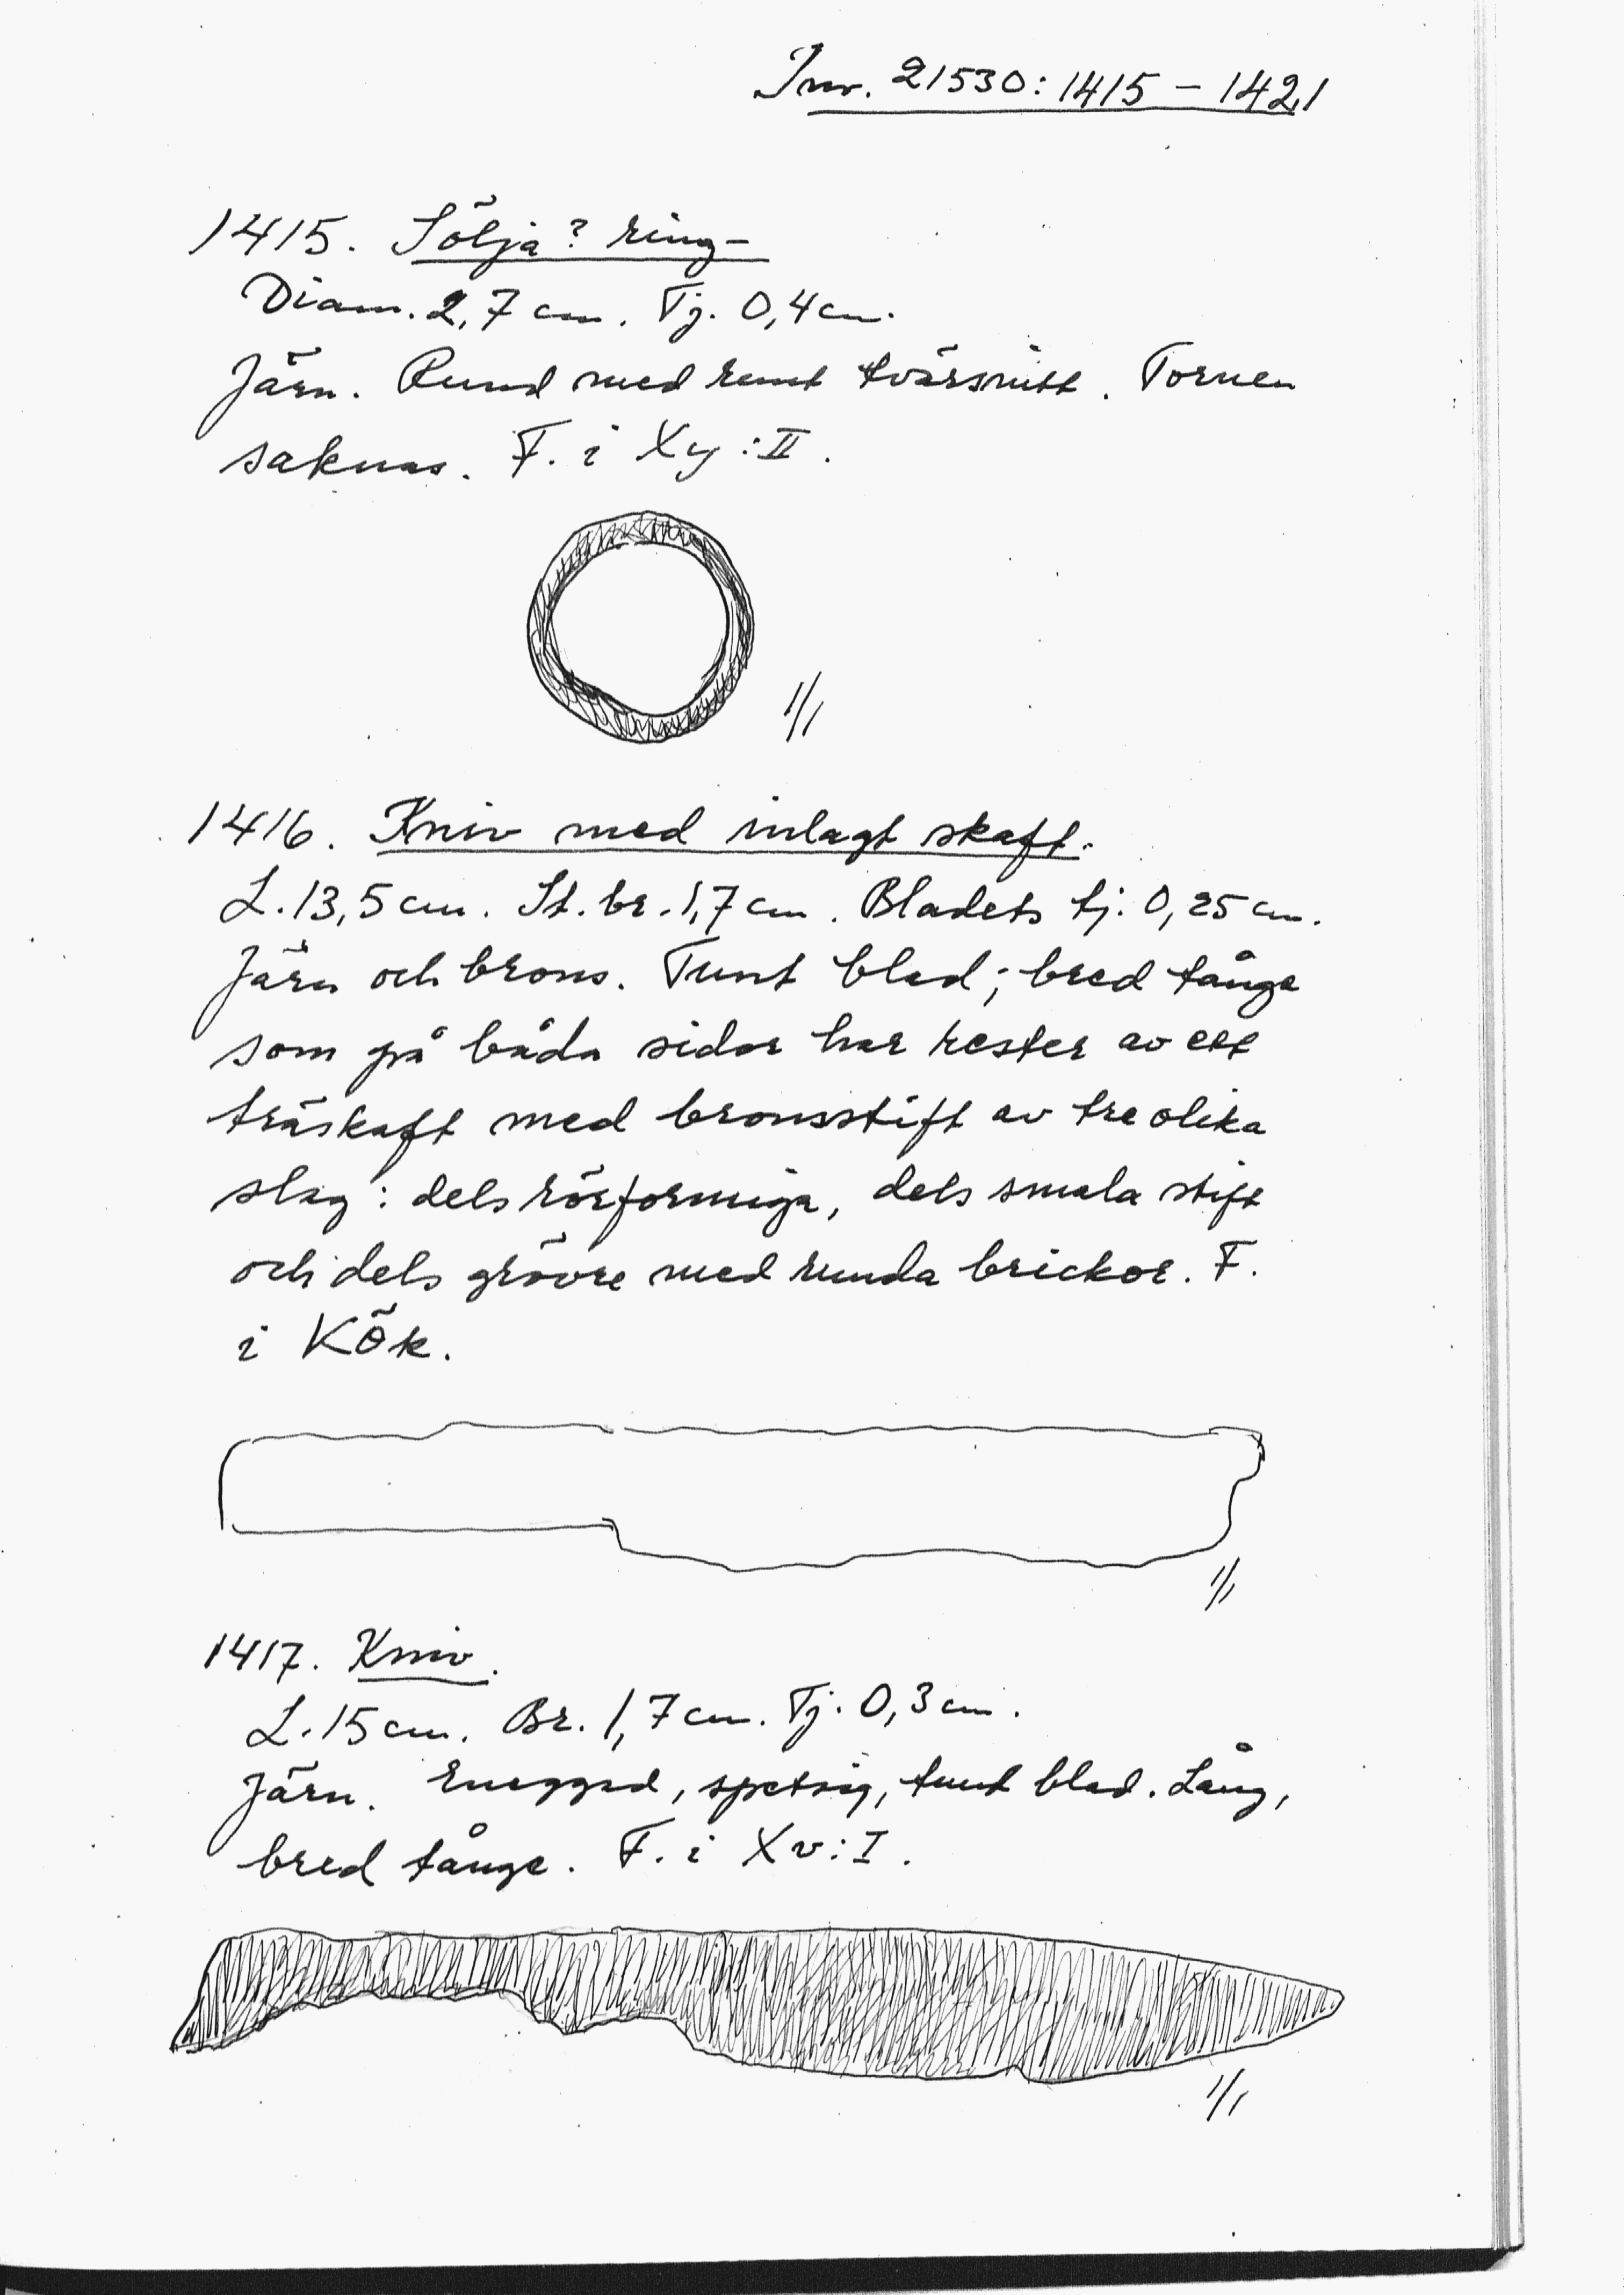 Inv. 21530:1415 – 1421
1415. Sölja? ring-
Diam. 2,7 cm. Tj. 0,4 cm.
Järn. Rund med runt tvärsnitt. Tornen
saknas. F. i Xy:II.
1/1
1416. Kniv med inlagt skaft.
L. 13,5 cm. St. br. 1,7 cm. Bladets tj. 0,25 cm.
Järn och brons. Tunt blad; bred tånge
som på båda sidor har rester av ett
träskaft med bronsstift av tre olika
slag: dels rörformiga, dels smala stift
och dels grövre med runda brickor. F.
i Kök.
1/1
1417. Kniv.
L. 15 cm. Br. 1,7 cm. Tj. 0,3 cm.
Järn. Eneggad, spetsig, tunt blad. Lång,
bred tånge. F. i Xv:I.
1/1